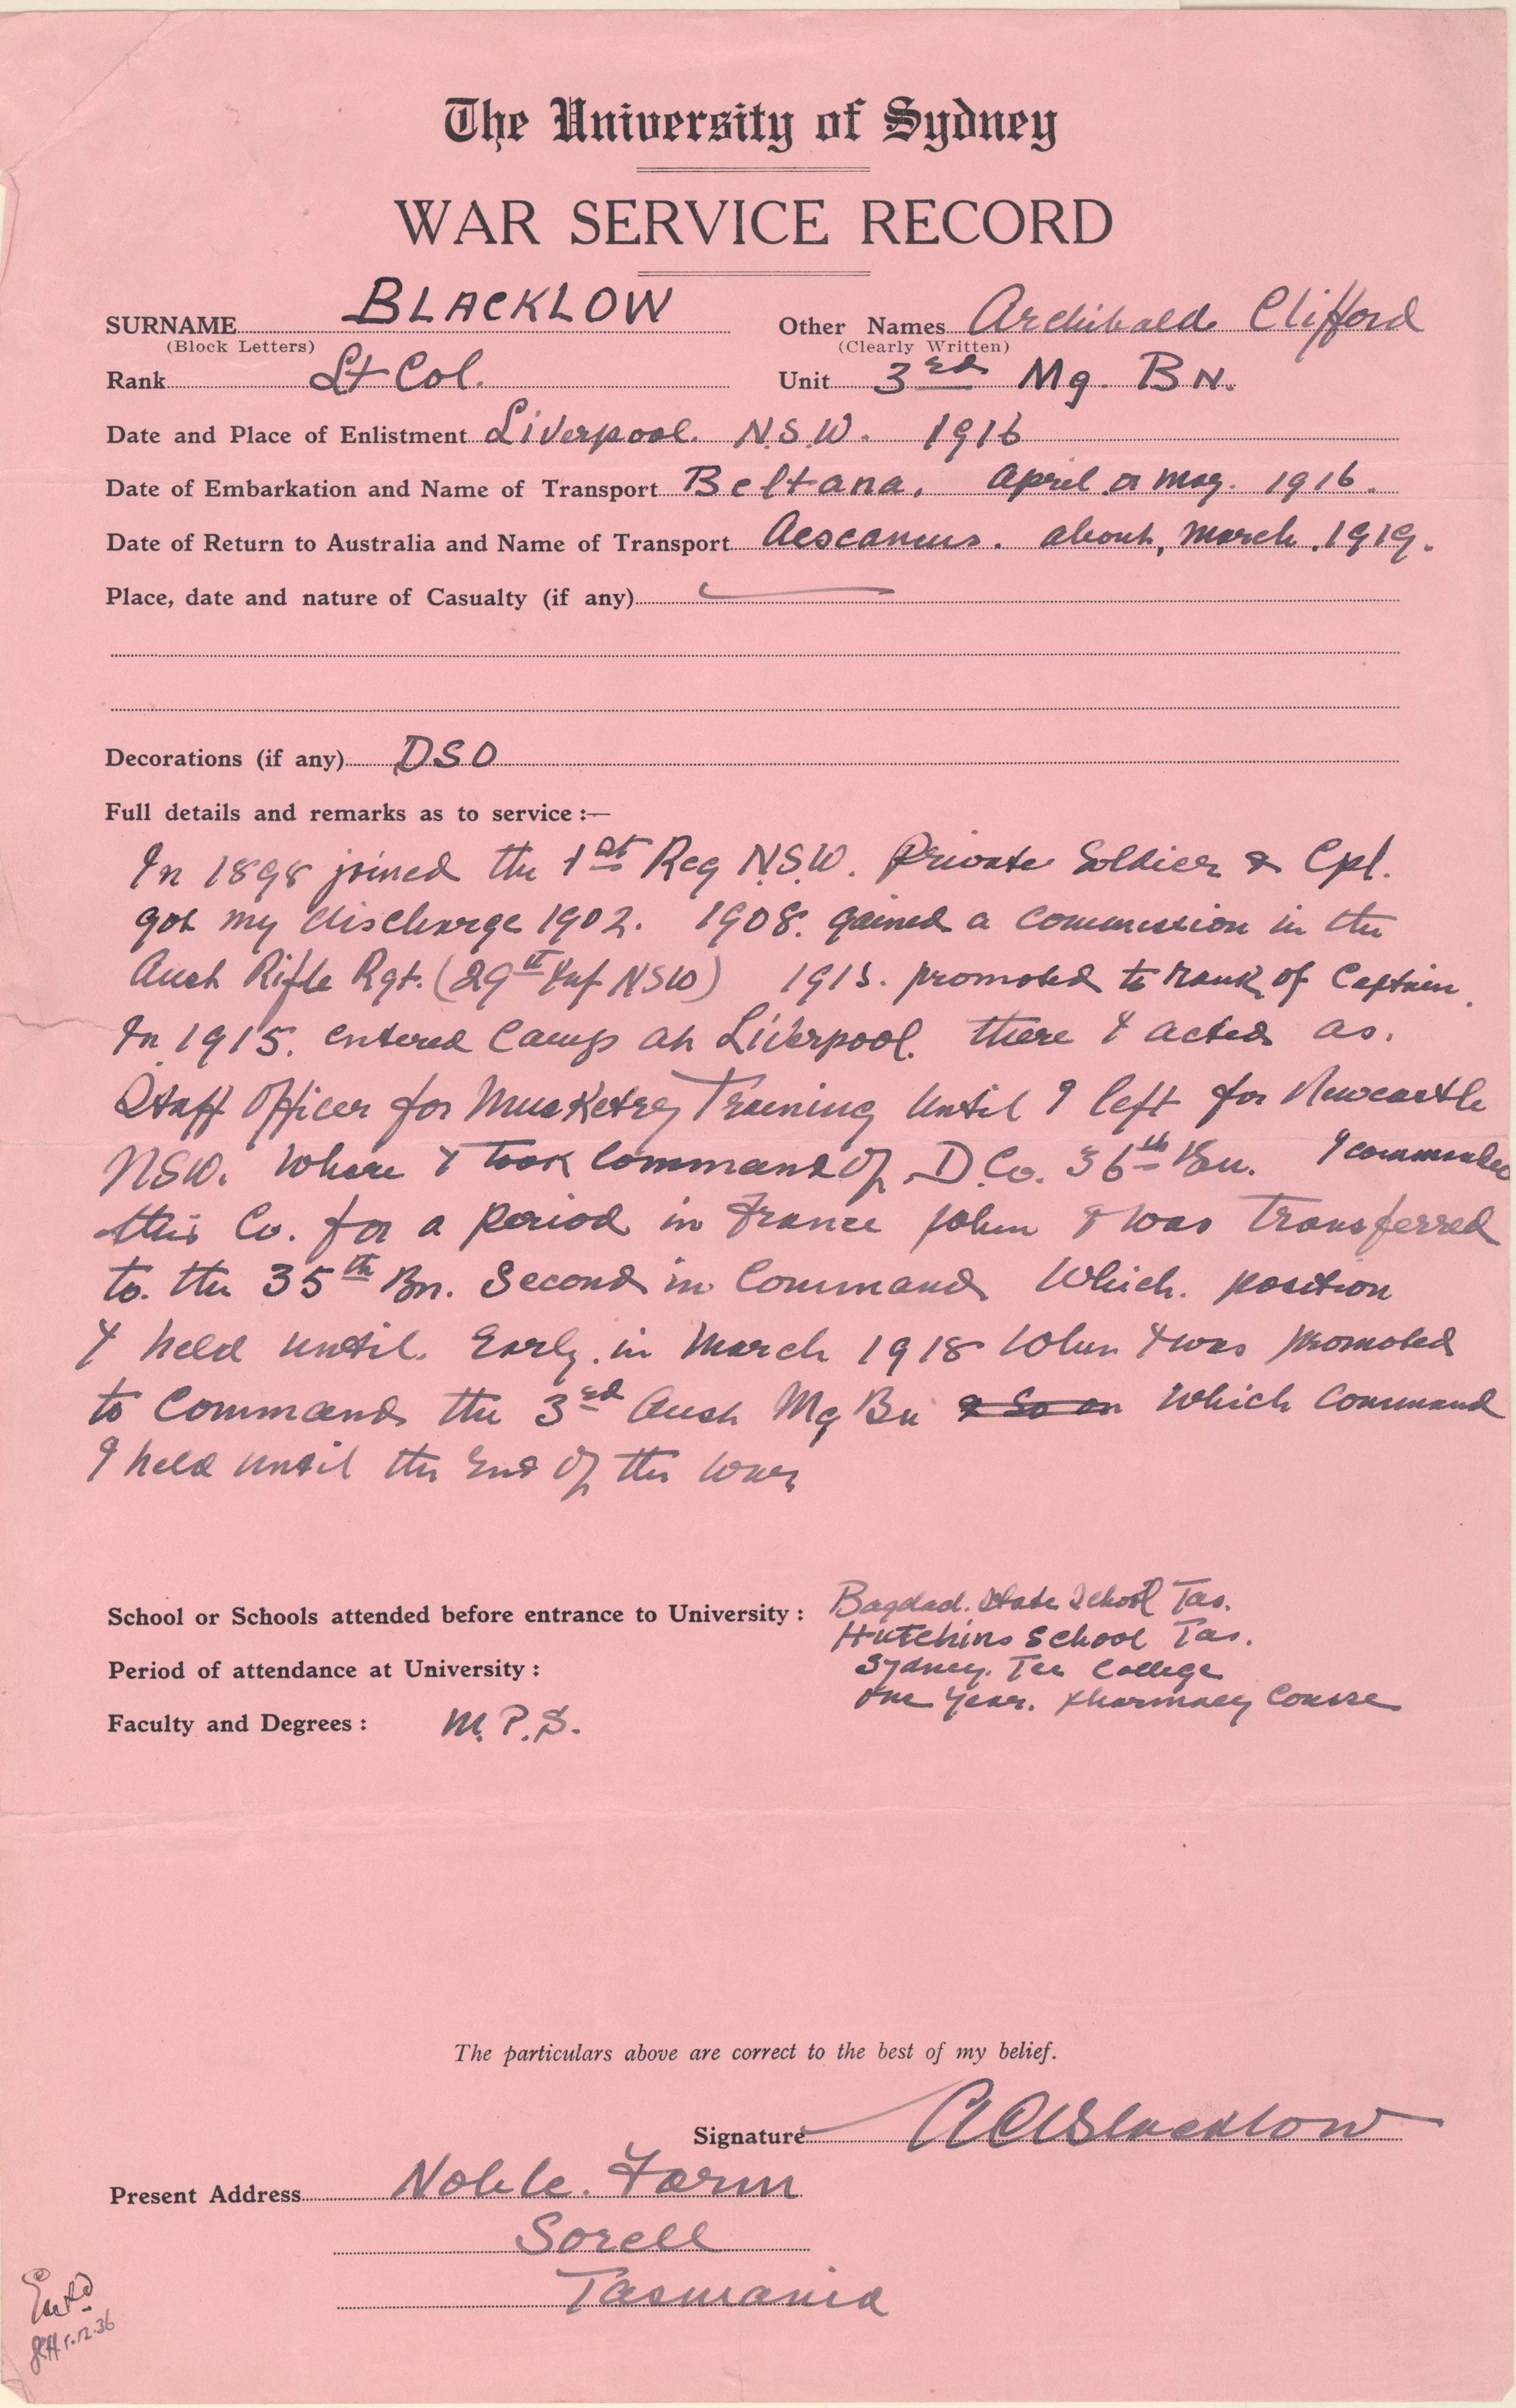 The University of Sydney
WAR SERVICE RECORD
SURNAME BLACKLOW Other Names Archibald Clifford
(Block Letters) (Clearly Written)
Rank Lt Col. Unit 3rd Mg. BN.
Date and Place of Enlistment Liverpool. N.S.W. 1916
Date of Embarkation and Name of Transport Beltana. April or May. 1916.
Date of Return to Australia and Name of Transport Aescanius. about, March. 1919.
Place, date and nature of Casualty (if any)
Decorations (if any) DSO
Full details and remarks as to service :—
In 1898 joined the 1st Reg N.S.W. Private Soldier & Cpl.
got my discharge 1902. 1908. gained a commission in the
Aust Rifle Rgt. (29th Inf NSW) 1913. promoted to rank of Captain.
In 1915. entered Camp at Liverpool. there I acted as.
Staff Officer for Musketry Training until I left for Newcastle
NSW. Where I took Command of D.Co. 36th Bn. I commanded
this Co. for a period in France when I was transferred
to. the 35th Bn. Second in Command Which. position
I held until. Early. in March 1918 When I was promoted
to Command the 3rd Aust Mg Bn & So on which Command
I held until the End of the War
School or Schools attended before entrance to University : Bagdad. State School Tas.
Hutchins School Tas.
Period of attendance at University : Sydney. Tec College
one Year. Pharmacy Course
Faculty and Degrees : M.P.S.
The particulars above are correct to the best of my belief.
Signature ACBlacklow
Present Address Noble. Farm
Sorell
Tasmania
Ent'd
1.12.36